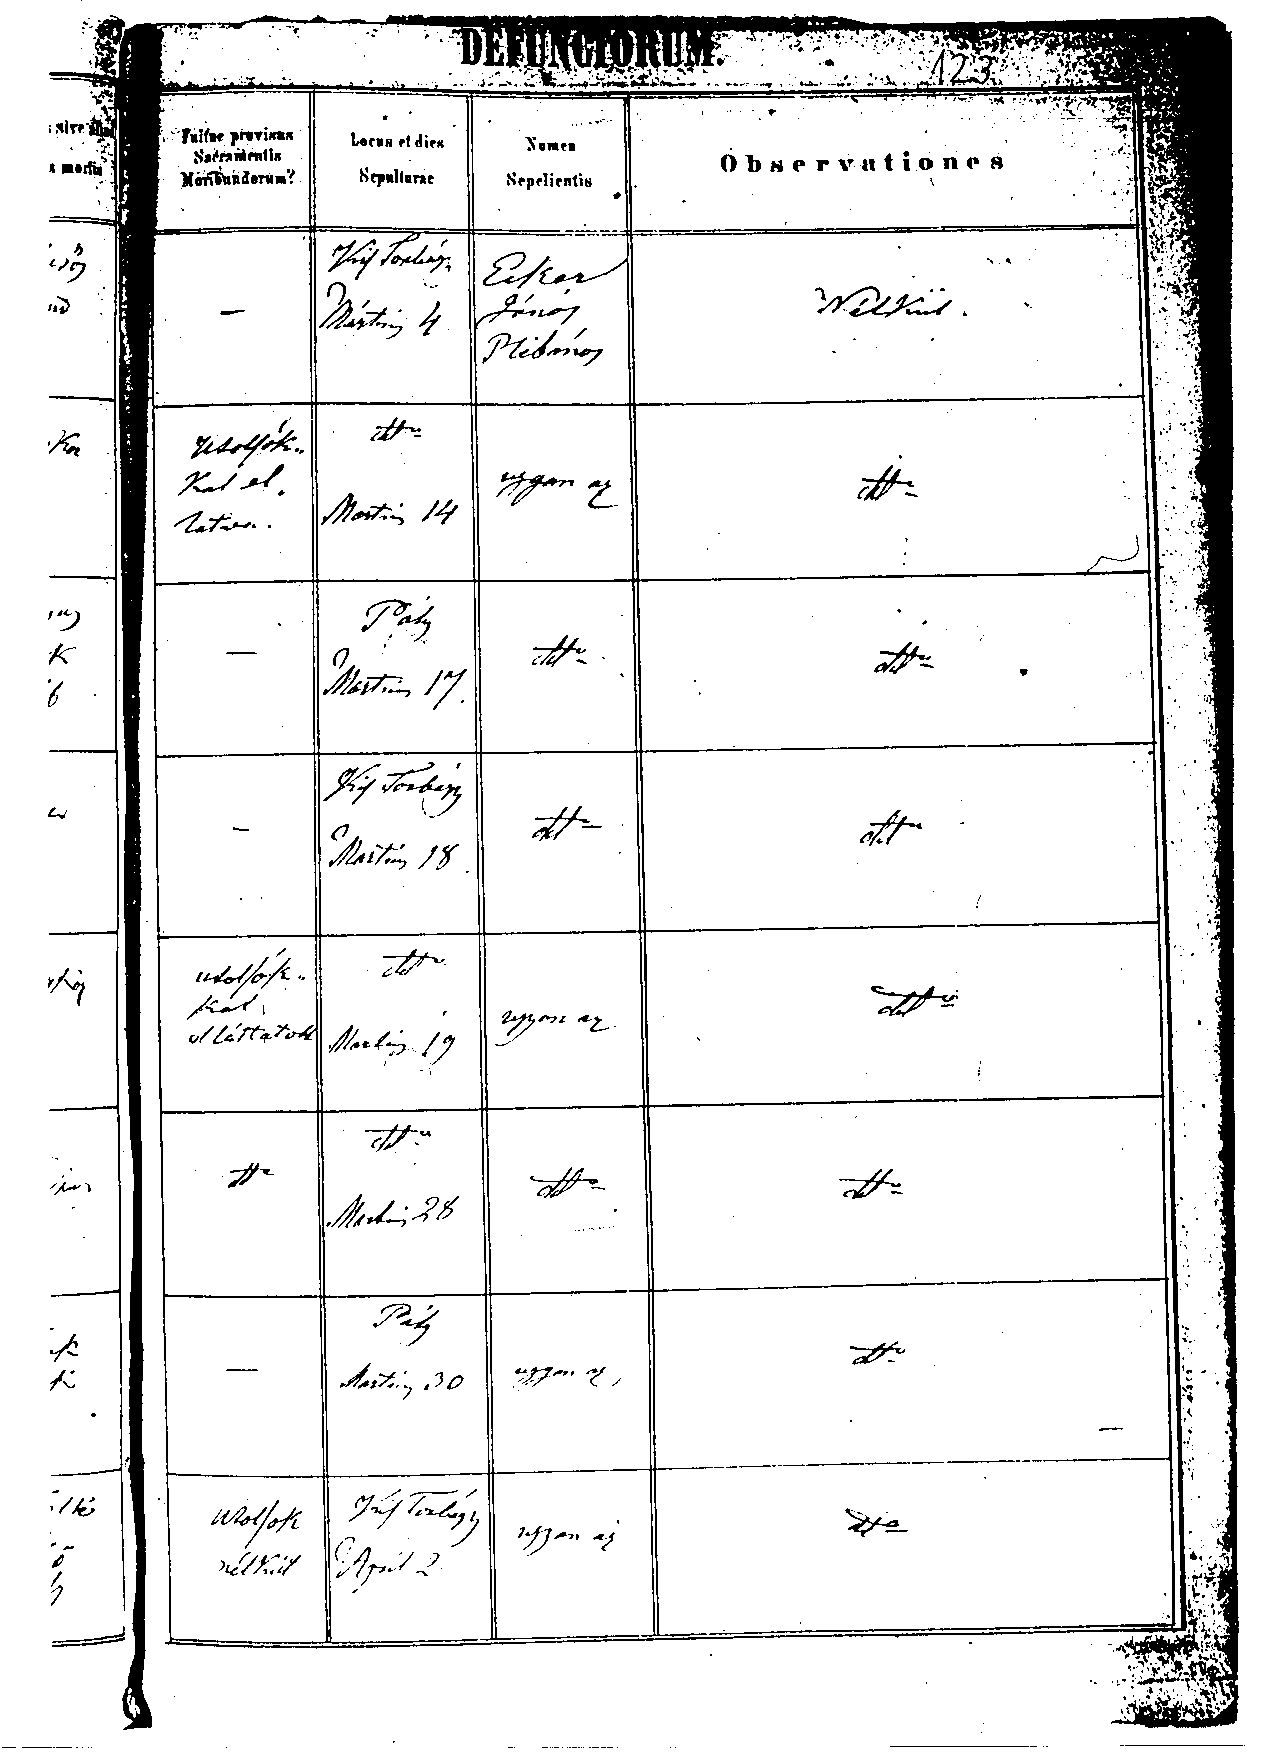 DEFUNCTORUM.
123
Fuitne provisus
Sacramentis
Moribundorum?
Locus et dies
Sepulturae
Nomen
Sepelientis
Observationes
—
Kis Torbágy
Mártius 4
János
Plébános
Nélkül.
utolsók-
kal el.
látva.
dtto
Martius 14
ugyan az
dtto
—
Páty
Martius 17.
dtto
dtto
—
Kis Torbágy
Martius 18
dtto
dtto
utolsók-
kal
elláttatott
dtto
Martius 19
ugyan az
dtto
dtto
dtto
Martius 28
dtto
dtto
—
Páty
Martius 30
ugyan az
dtto
utolsok
nélkül
Kis Torbágy
April 2
ugyan az
dtto